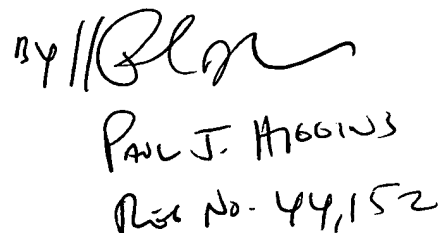 By
PAUL J. HIGGINS
REG NO. 44,152